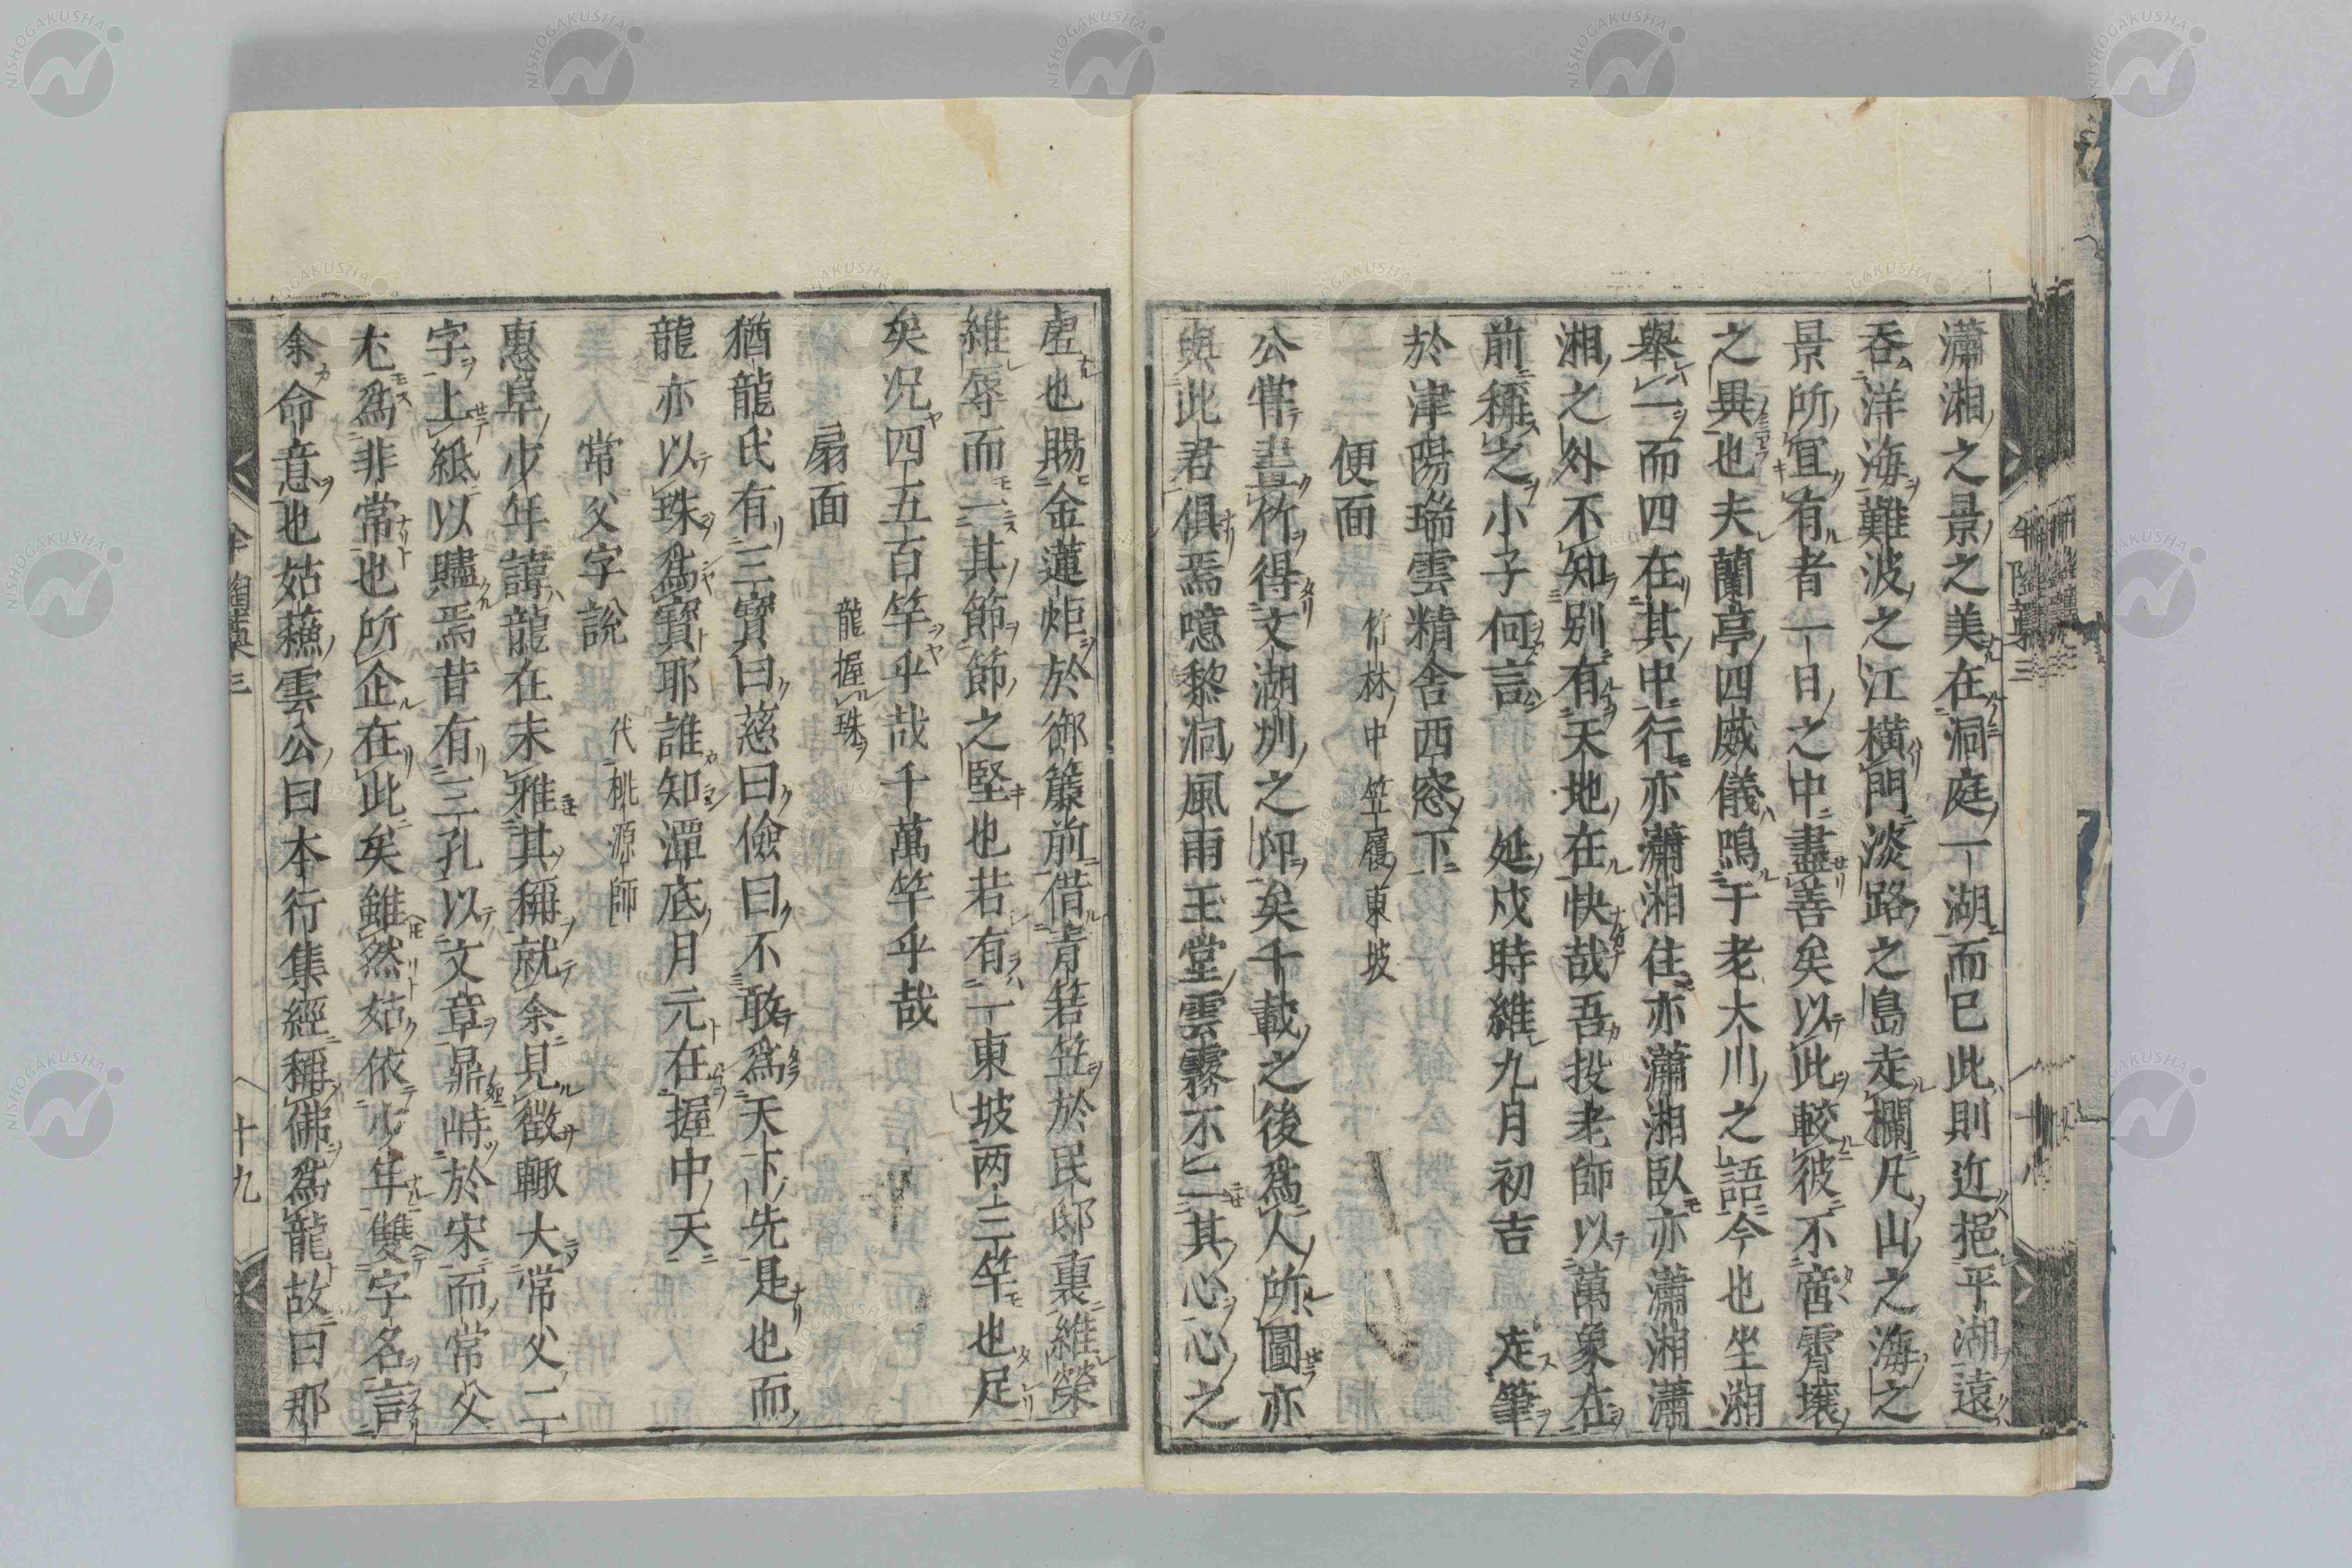 瀟湘之景之美在洞庭一湖而已此則近挹平湖遠
吞洋海難波之江橫門淡路之島走欄凡山之海之
景所宜有者一日之中盡善矣以此較彼不啻霄壤
之異也夫蘭亭四威儀鳴于老大川之語今也坐湘
舉一而四在其中行亦瀟湘住亦瀟湘臥亦瀟湘瀟
湘之外不知別有天地在快哉吾投老師以萬象在
前稱之小子何言 延戌時維九月初吉 走筆
於津陽瑞雲精舍西窓下
便面 竹林中笠履東坡
公嘗畫竹得文湖州之印矣千載之後為人所圖亦
與此君俱焉噫黎洞風雨玉堂雲霧不二其心心之
虛也賜金蓮炬於御簾前借青箬笠於民邸裏維榮
維辱而一其節節之堅也若有一東坡两三竿也足
矣况四五百竿乎哉千萬竿乎哉
扇面 龍握珠
猶龍氏有三寳曰慈曰儉曰不敢為天下先是也而
龍亦以珠為寳耶誰知潭底月元在握中天
常父字說 代桃源師
惠阜少年諱龍在未雅其稱就余見徵輙大常父二
字上紙以贐焉昔有三孔以文章鼎峙於宋而常父
尤為非常也所企在此矣雖然姑依少年雙字名言
余命意也姑蘓雲公曰本行集經稱佛為龍故曰那
三
十九